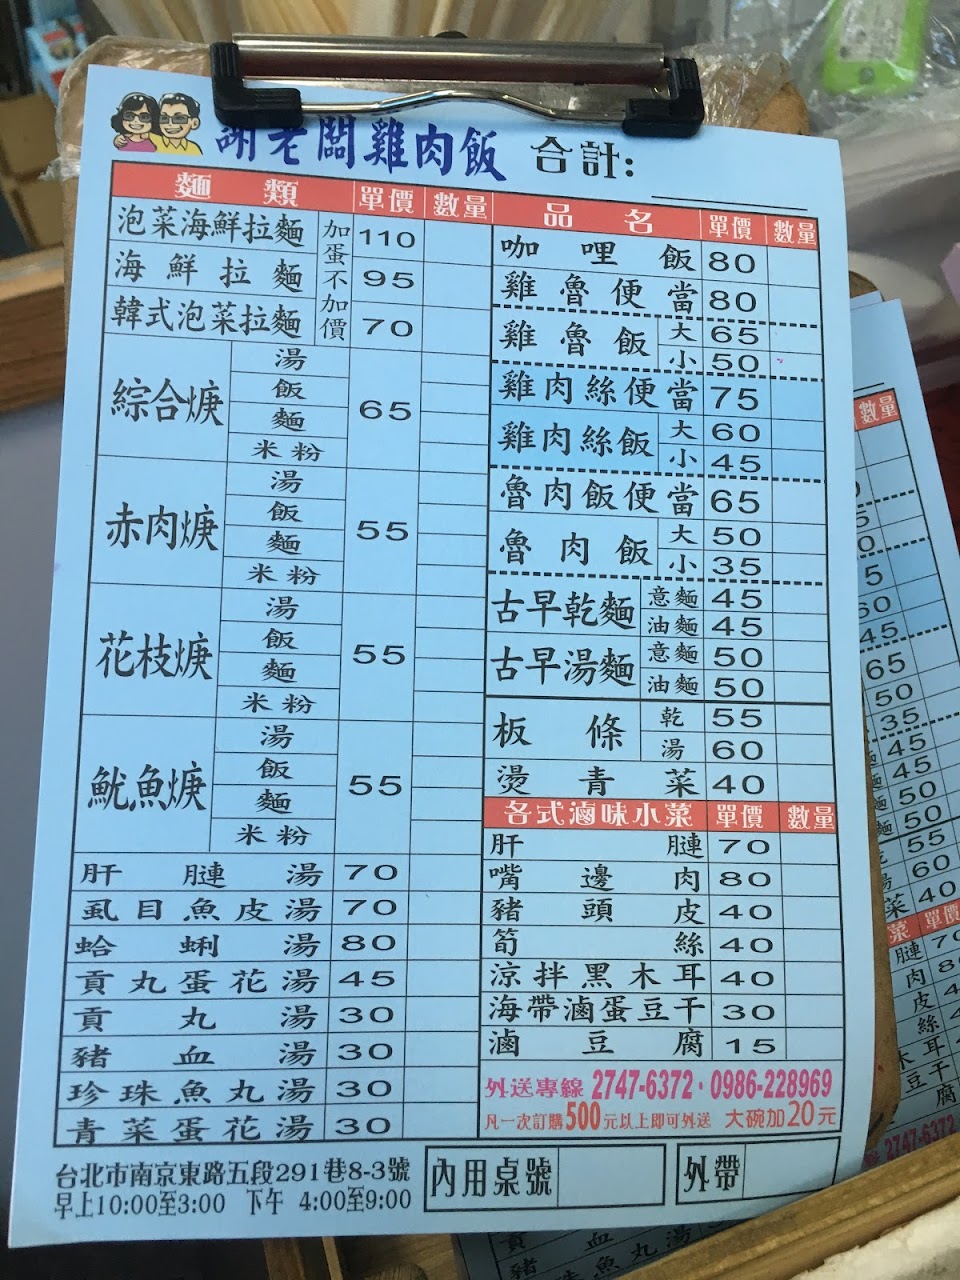 謝老闆雞肉飯 合計:
麵類 單價 數量
泡菜海鮮拉麵 110
海鮮拉麵 95
韓式泡菜拉麵 70
加蛋不加價
綜合焿 湯 飯 麵 米粉 65
赤肉焿 湯 飯 麵 米粉 55
花枝焿 湯 飯 麵 米粉 55
魷魚焿 湯 飯 麵 米粉 55
肝膢湯 70
虱目魚皮湯 70
蛤蜊湯 80
貢丸蛋花湯 45
貢丸湯 30
豬血湯 30
珍珠魚丸湯 30
青菜蛋花湯 30
品名 單價 數量
咖哩飯 80
雞魯便當 80
雞魯飯 大 65
小 50
雞肉絲便當 75
雞肉絲飯 大 60
小 45
魯肉飯便當 65
魯肉飯 大 50
小 35
古早乾麵 意麵 45
油麵 45
古早湯麵 意麵 50
油麵 50
板條 乾 55
湯 60
燙青菜 40
各式滷味小菜 單價 數量
肝膢 70
嘴邊肉 80
豬頭皮 40
筍絲 40
涼拌黑木耳 40
海帶滷蛋豆干 30
滷豆腐 15
外送專線 2747-6372·0986-228969
凡一次訂購500元以上即可外送 大碗加20元
台北市南京東路五段291巷8-3號
早上10:00至3:00 下午 4:00至9:00
內用桌號
外帶